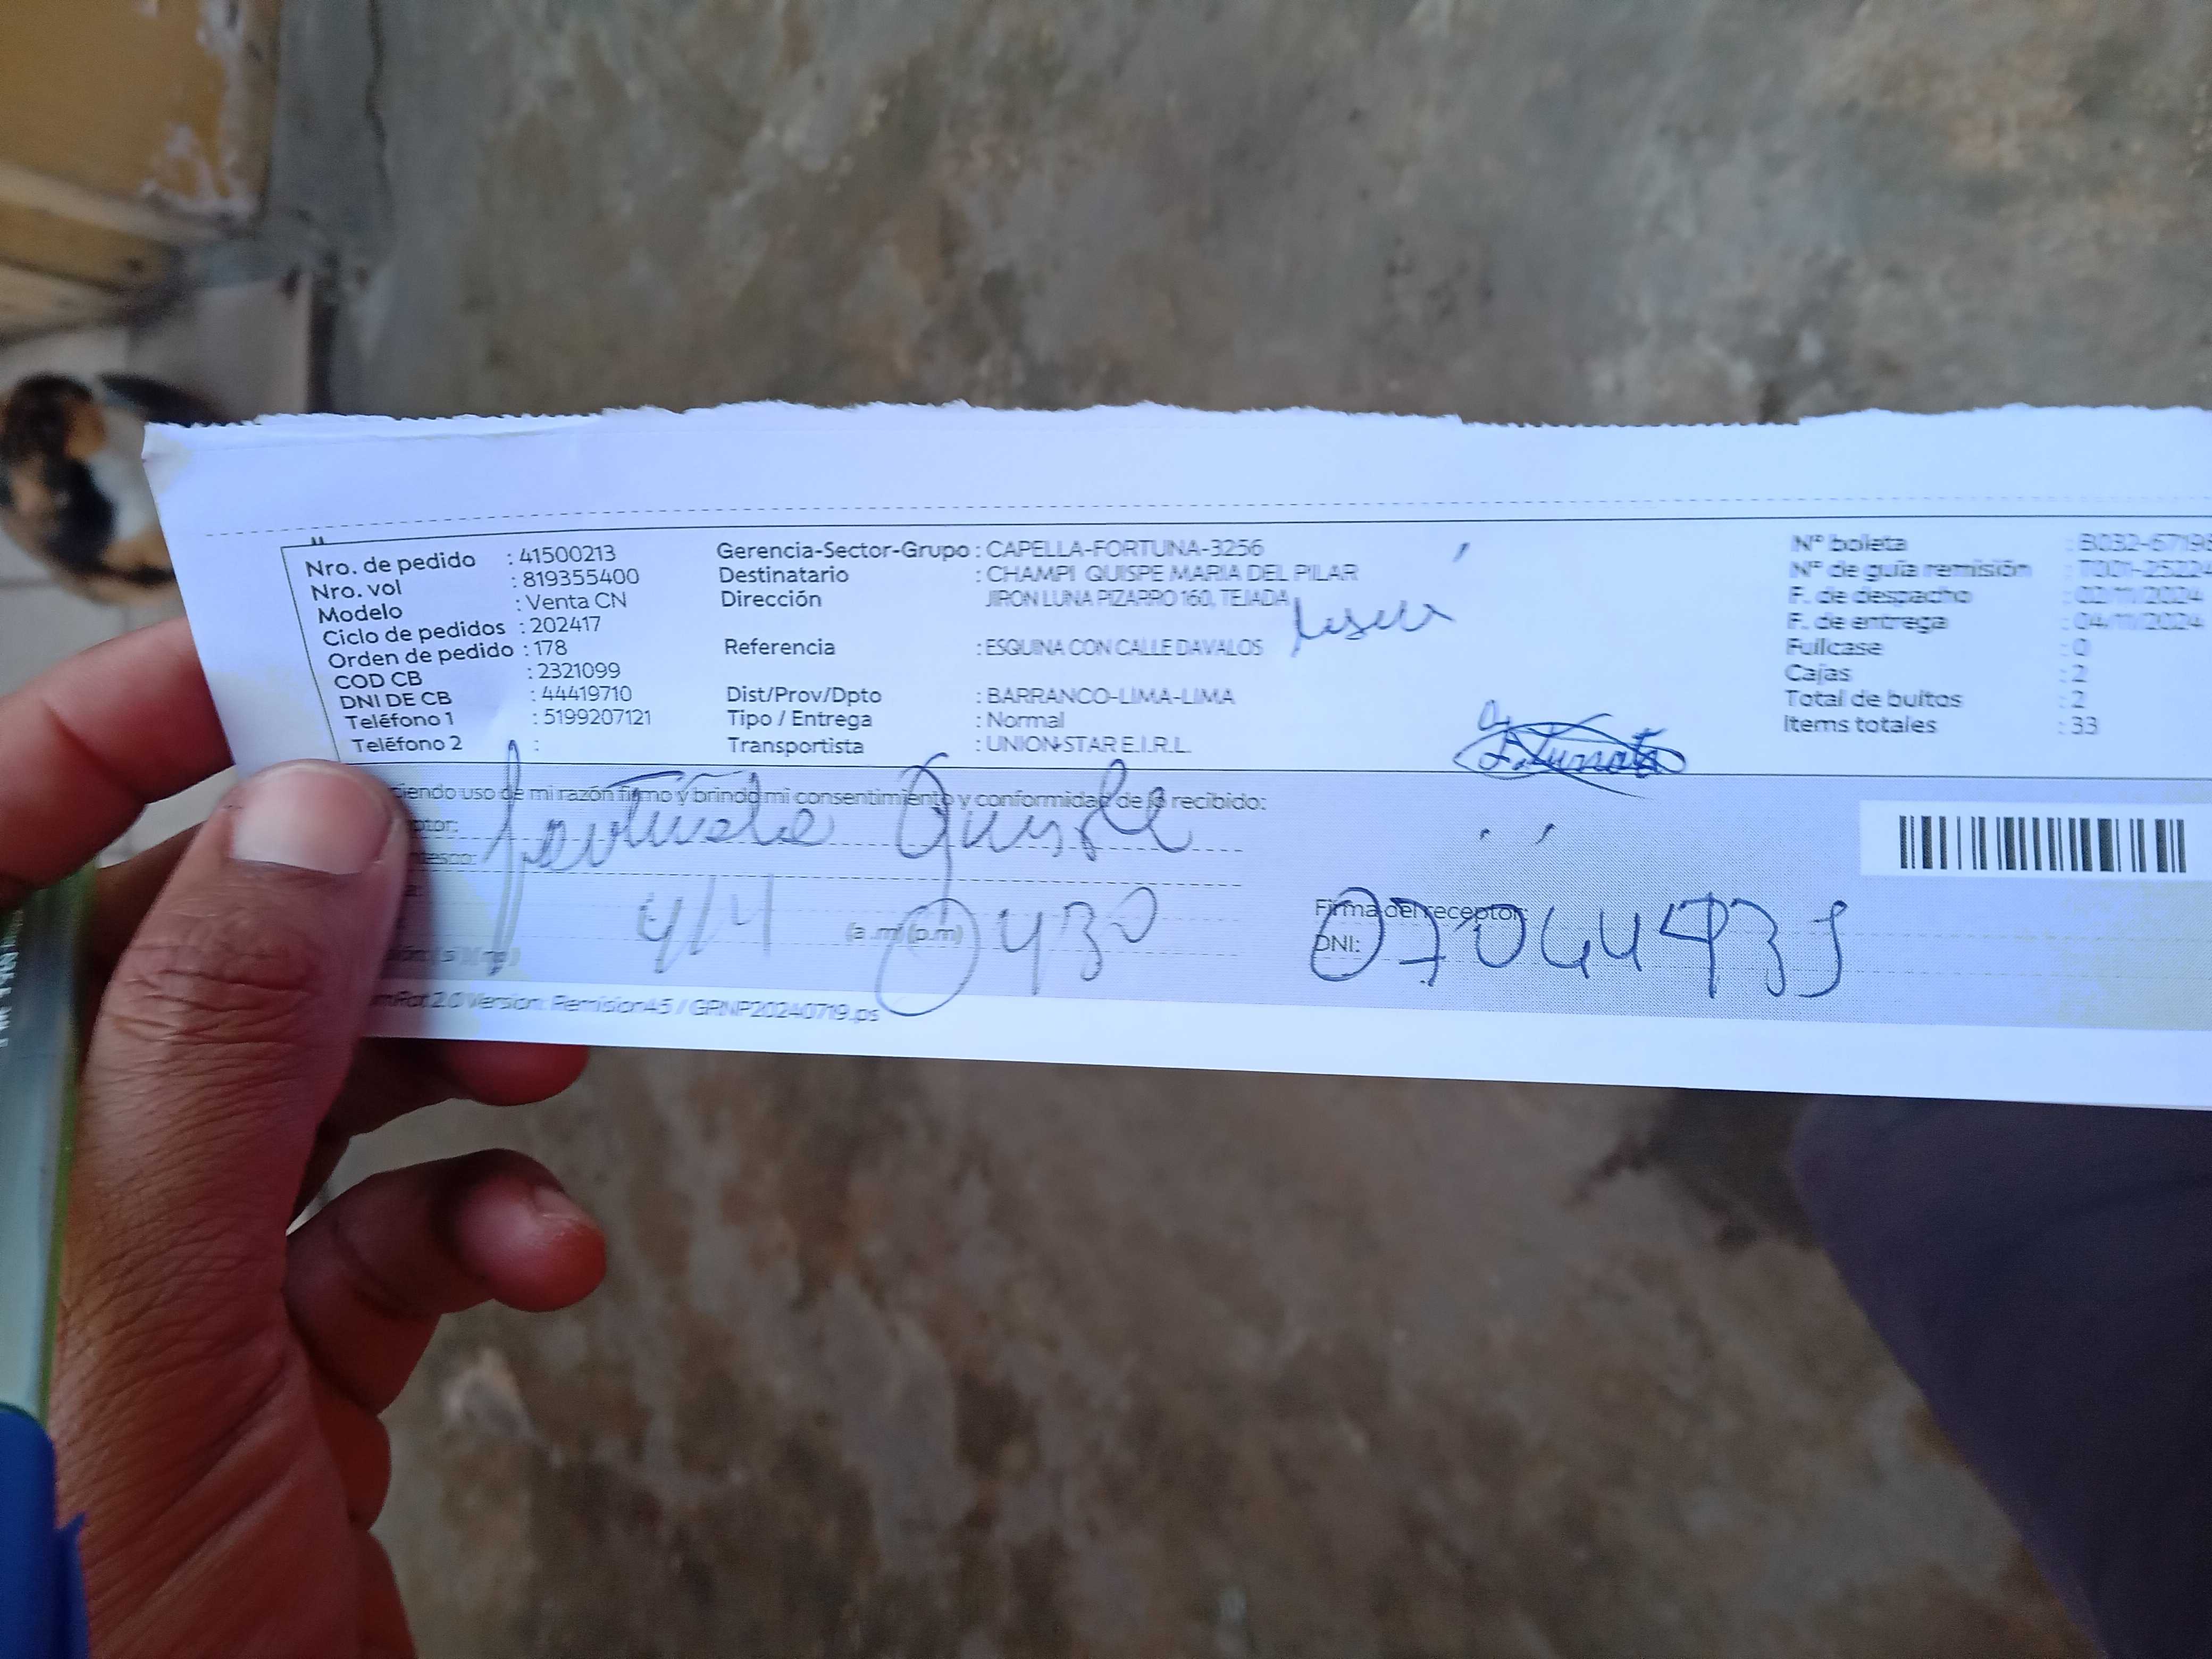 Nro. de pedido : 41500213
Nro. vol : 819355400
Modelo : Venta CN
Ciclo de pedidos : 202417
Orden de pedido : 178
COD CB : 2321099
DNI DE CB : 44419710
Teléfono 1 : 5199207121
Teléfono 2 :
Gerencia-Sector-Grupo : CAPELLA-FORTUNA-3256
Destinatario : CHAMPI QUISPE MARIA DEL PILAR
Dirección JIRON LUNA PIZARRO 160, TEJADA
Referencia : ESQUINA CON CALLE DAVALOS
Dist/Prov/Dpto : BARRANCO-LIMA-LIMA
Tipo / Entrega : Normal
Transportista : UNION-STAR E.I.R.L.
Nº boleta : B032-6719
Nº de guía remisión : T001-25224
F. de despacho : 02/11/2024
F. de entrega : 04/11/2024
Fullcase : 0
Cajas : 2
Total de bultos : 2
Items totales : 33
iendo uso de mi razón firmo y brindo mi consentimiento y conformidad de lo recibido:
Quispe
4/11 (a.m/(p.m) 430
Firma del receptor:
DNI:
2.0 Version: Remision45 / GRNP20240719.ps